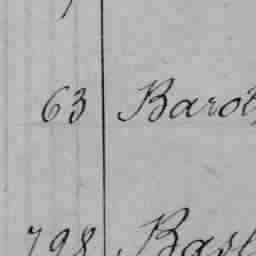 63 Barot
798 Bart